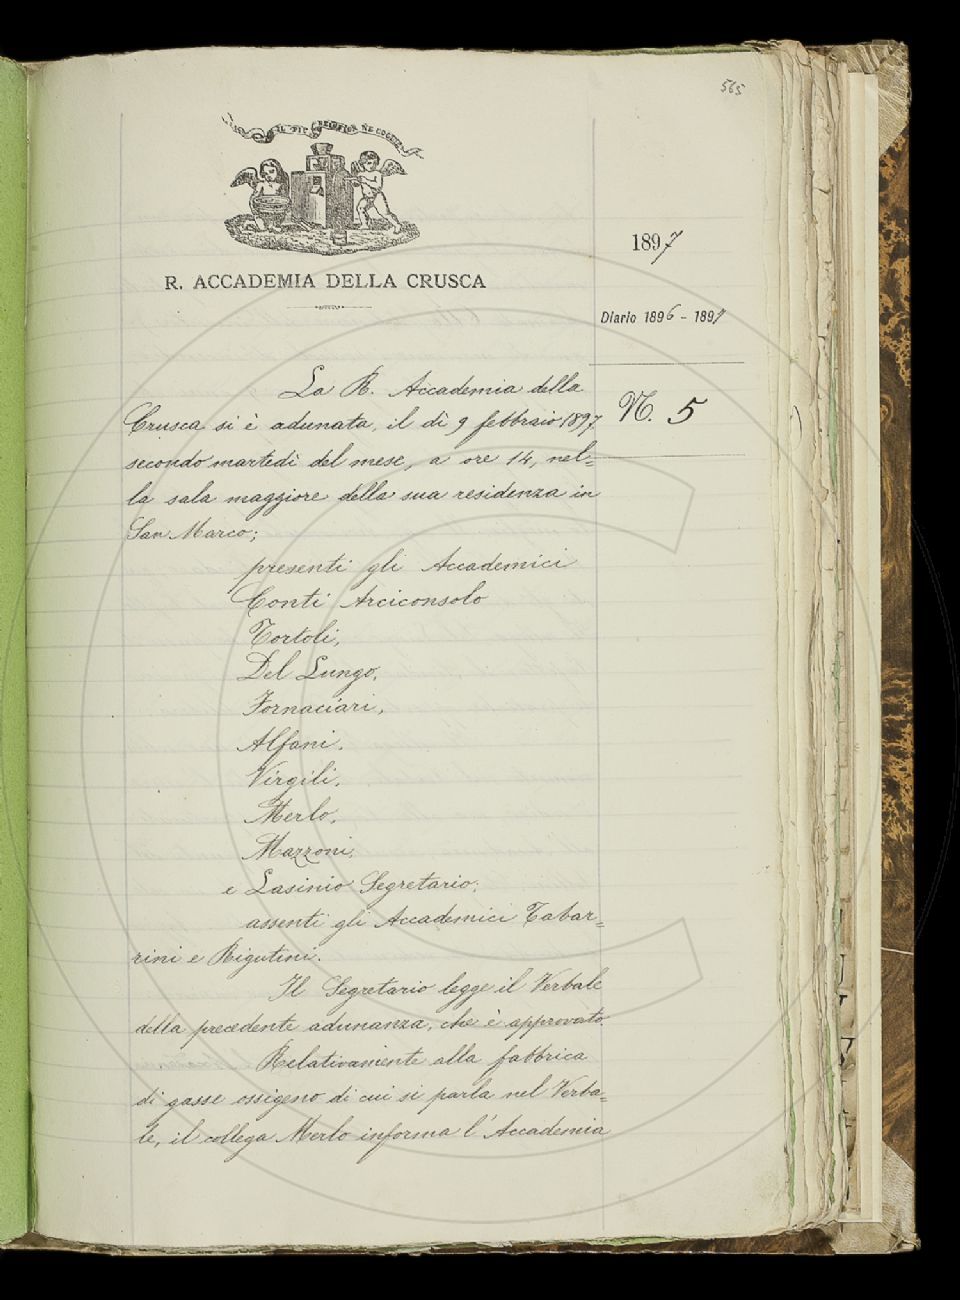 565
IL PIÙ BEL FIOR NE COGLIE
R. ACCADEMIA DELLA CRUSCA
1897
Diario 1896 - 1897
N. 5
La R. Accademia della
Crusca si è adunata, il dì 9 febbraio 1897
secondo martedì del mese, a ore 14, nel=
la sala maggiore della sua residenza in
San Marco;
presenti gli Accademici
Conti Arciconsolo
Tortoli,
Del Lungo,
Fornaciari,
Alfani,
Virgili,
Merlo,
Mazzoni,
e Lasinio Segretario;
assenti gli Accademici Tabar=
rini e Rigutini.
Il Segretario legge il Verbale
della precedente adunanza, che è approvato.
Relativamente alla fabbrica
di gasse ossigeno di cui si parla nel Verba=
le, il collega Merlo informa l'Accademia